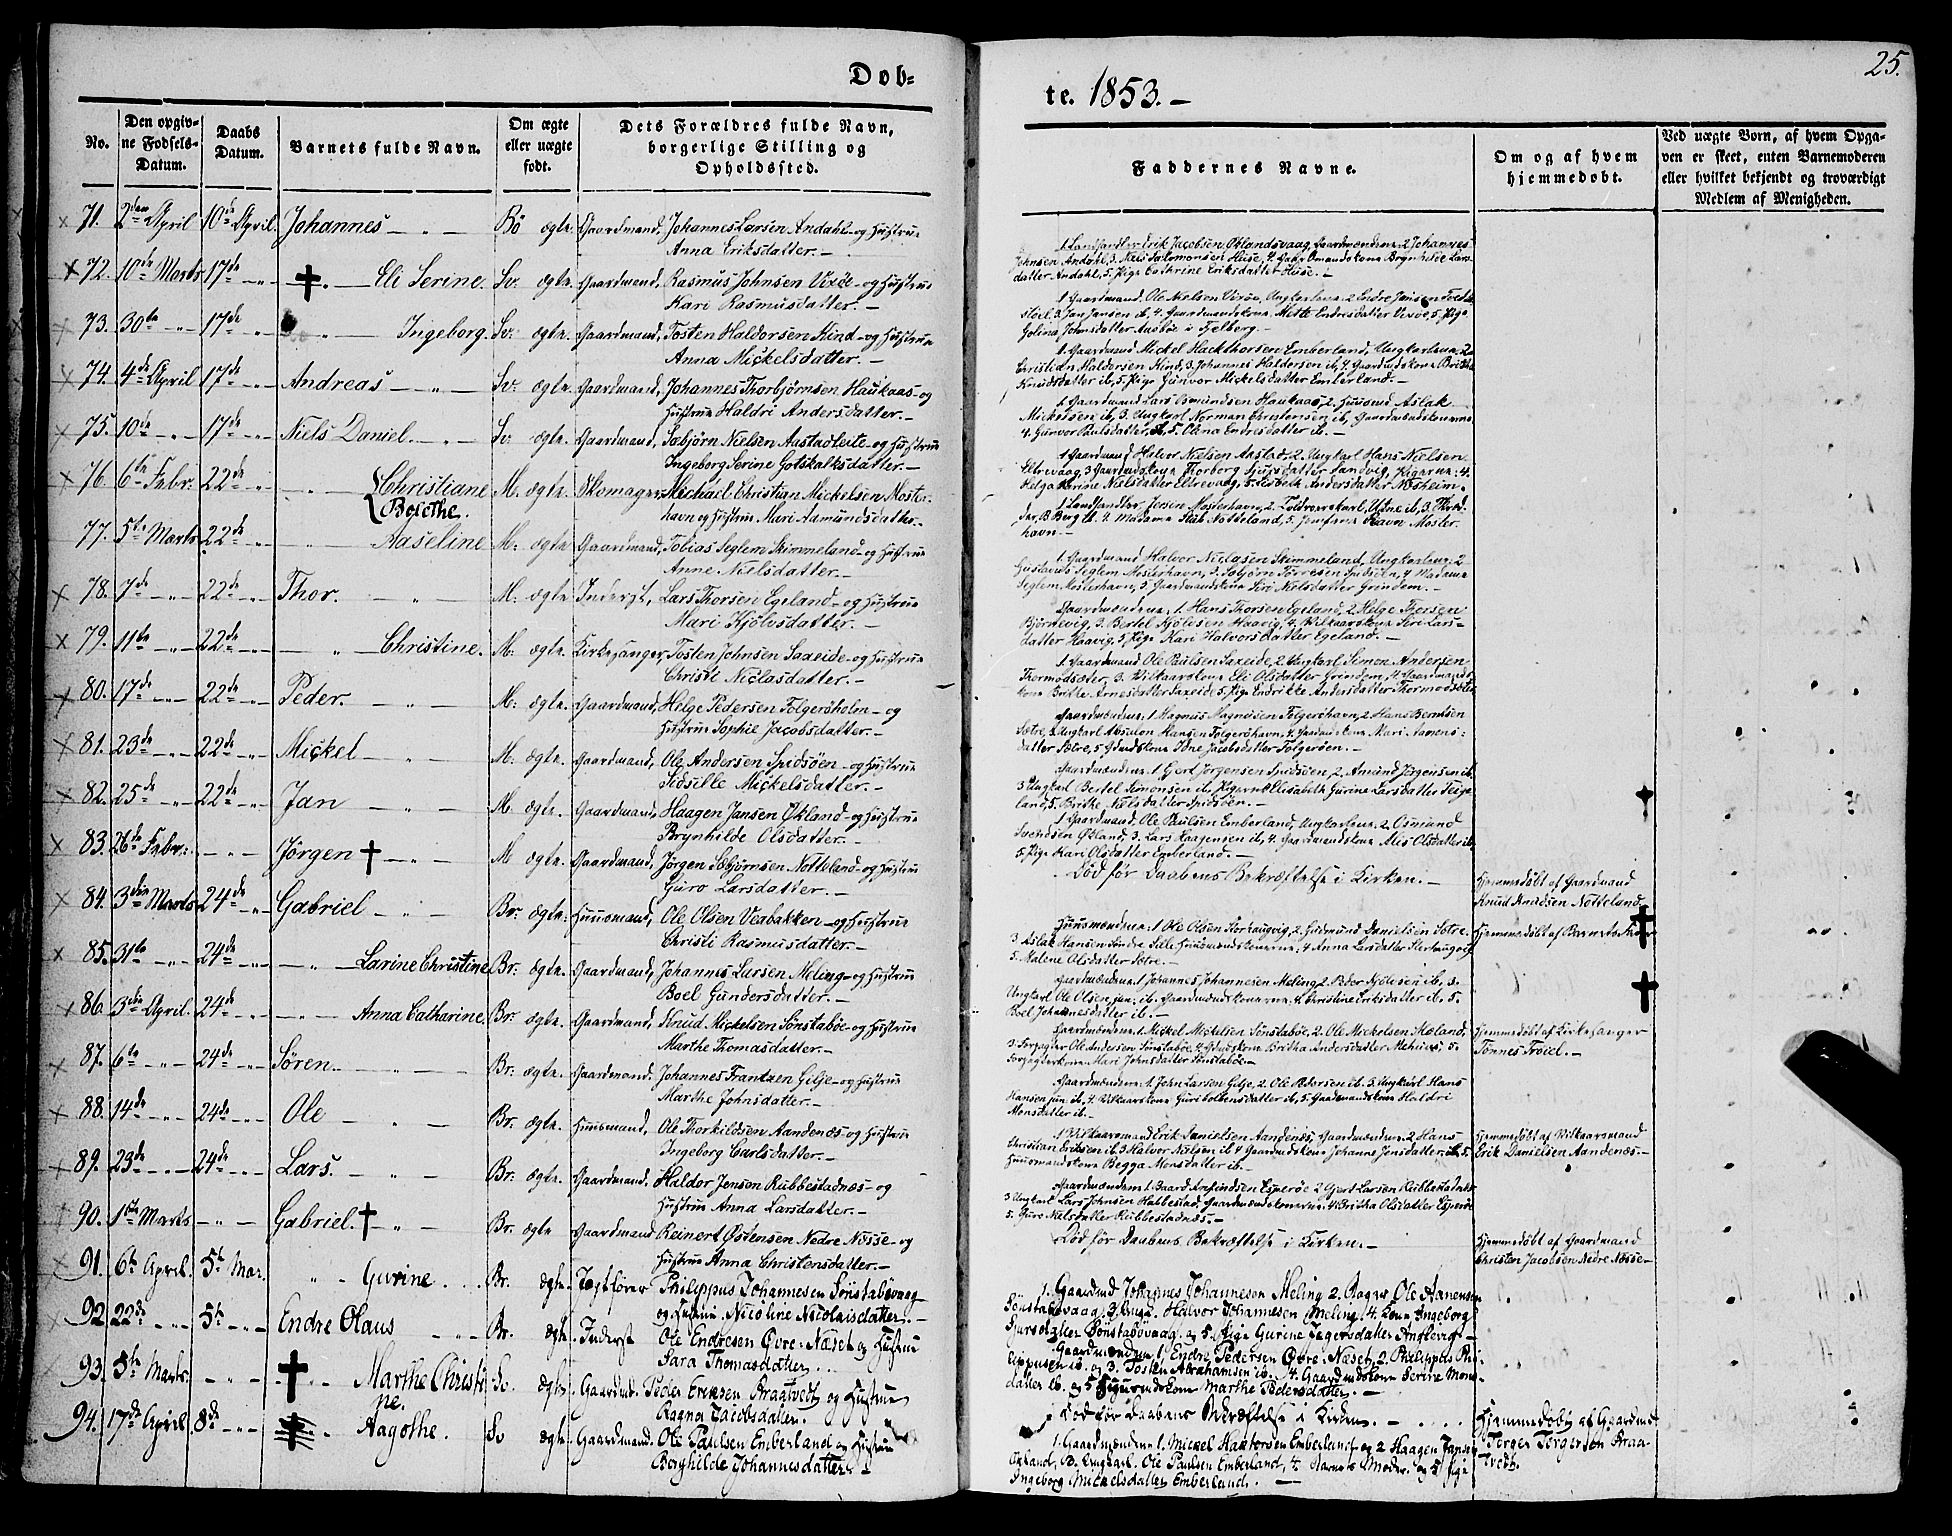 Dob=
No.
Den opgiv=
ne Fodsels-
Datum.
Daabs
Datum.
Barnets fulde Navn.
Om ægte
eller uægte
født.
Dets Forældres fulde Navn,
borgerlige Stilling og
Opholdssted.
71. 2den April 10de April. Johannes Bö ægte. Gaardmand, Johannes Larsen Andahl og Hustrue
Anna Eriksdatter.
72. 10de Marts 17de Eli Serine. Sv. ægte. Gaardmand, Rasmus Johnsen Vixöe og Hustrue
Kari Rasmusdatter.
73. 30te 17de Ingeborg. Sv. ægte. Gaardmand, Tosten Haldorsen Hind og Hustrue
Anna Mickelsdatter.
74. 4de April 17de Andreas Sv. ægte. Gaardmand, Johannes Thorbjørnsen Haukaas og
Hustrue Haldri Andersdatter.
75. 10de 17de Niels Daniel. Sv. ægte. Gaardmand, Sæbjörn Nielsen Aastadleite og Hustrue
Ingeborg Serine Gotskalksdatter.
76. 6te Febr. 22de Christiane M. ægte. Skomager, Michael Christian Mickelsen Moster-
Berethe. havn og Hustrue Mari Aamundsdatter.
77. 5te Marts 22de Aaseline M. ægte Gaardmand, Tobias Seglem Skimmeland og Hustrue
Anne Nielsdatter.
78. 7de 22de Thor. M. ægte Inderst, Lars Thorsen Egeland og Hustrue
Mari Kjölvsdatter.
79. 11te 22de Christine. M. ægte. Kirkesanger Tosten Johnsen Saxeide og Hustrue
Christi Niclasdatter.
80. 17de 22de Peder. M. ægte. Gaardmand, Helge Pedersen Folgersholm og
Hustrue Sophie Jacobsdatter.
81. 23de 22de Mickel M. ægte. Gaardmand, Ole Andersen Spidsöen og Hustrue
Sidsille Mickelsdatter.
82. 25de 22de Jan M. ægte. Gaardmand, Haagen Jansen Økland og Hustrue
Brynhilde Olsdatter.
83. 26te Febr. Jörgen M ægte. Gaardmand, Jörgen Sæbjørnsen Notteland og Hustrue
Guro Larsdatter.
84. 3die Marts 24de Gabriel Br. ægte. Huusmand, Ole Olsen Verbakken og Hustrue
Christi Rasmusdatter.
85. 31te 24de Larine Christine Br. ægte. Gaardmand, Johannes Larsen Meling og Hustrue
Boel Gundersdatter.
86. 3die April 24de Anna Catharine Br. ægte. Gaardmand, Knud Mickelsen Sönstaböe og Hustrue
Marthe Thomasdatter.
87. 6te 24de Sören. Br. ægte. Gaardmand. Johannes Frantzen Gilje og Hustrue
Marthe Johnsdatter.
88. 14de 24de Ole Br. ægte. Huusmand, Ole Thorkildsen Aandenæs og Hustrue
Ingeborg Carlsdatter.
89. 23de 24de Lars. Br. ægte. Gaardmand. Haldor Jensen Rubbestadnæs og
Hustrue Anna Larsdatter.
90. 1ste Marts Gabriel. Br. ægte Gaardmand Reinert Østensen Nedre Næsse og
Hustrue Anna Christensdatter.
91. 6te April. 5te Mai. Gurine Br. ægte. Philippus Johannesen Sönstabövaag
og Hustrue Nicoline Nicolaisdatter.
92 22de 5te Endre Olaus Br. ægte. Inderst Ole Endresen Øvre Næset og Hustrue
Sara Thomasdatter
93. 5te Marts Marthe Christi- Sv. ægte. Gaardmd. Peder Eriksen Braatvedt og Hustrue
ne. Ragna Jacobsdatter.
94. 17de April 8de Aagothe. Sv ægte. Gaardmand. Ole Paulsen Emberland og Hustrue
Borghilde Johannesdatter.
25.
te. 1853.
Faddernes Navne.
Om og af hvem
hjemmedobt.
Ved uægte Born, af hvem Opga-
ven er skeet, enten Barnemoderen
eller hvilket bekjendt og troværdigt
Medlem af Menigheden.
1 Landhandler Erik Jacobsen Øklandsvaag, Gaardmændene: 2 Johannes
Johnsen Andahl, 3. Niels Salomonsen Huse, 4. Brynhilde Lars-
datter Andahl, 5. Pige Cathrine Eriksdatter Huse.
1. Gaardmand. Ole Nielsen Vixöe, Ungkarlene: 2 Endre Jansen
3. Jan Jansen ib, 4. Gaardmandskone Mette Endresdatter Vixöe, 5. Pige
Golina Johnsdatter Aasbøe i Fjelberg.
1. Gaardmand Mickel Emberland, Ungkarlene: 2
Christian Haldorsen Hind, 3. Johannes Haldorsen ib, 4. Gaardmandskone Britha
Knudsdatter ib, 5. Pige Gunvor Mickelsdatter Emberland.
1. Gaardmand Lars Osmundsen Haukaas, 2. Huusmd Aslak
Mickelsen ib, 3. Ungkarl Norman ib, Gaardmandskonerne
4. Gunvor Paulsdatter ib, 5. Olena Endresdatter ib.
1 Gaardmand Halvor Nielsen Aastad, 2. Ungkarl Hans Nielsen
Eltrevaag, 3 Gaardmdskone Thorborg Sjursdatter Sandvig, Pigerne: 4.
Helga Serine Nielsdatter Eltrevaag, 5. Lisbeth Andersdatter Næsheim.
1 Landhandler Jersin Mosterhavn, 2. Toldroerskarl, Utne ib, 3.
B. Berg ib. 4. Madame Stub Notteland, 5. Jomfrue Ravn Moster-
havn.
1. Gaardmand Halvor Niclasen Skimmeland, Ungkarlene: 2
Gustavus Seglem Mosterhavn, 3. Torresen Spidsöen, 4. Madame
Seglem Mosterhavn, 5. Gaardmandskone Siri Nielsdatter Grindem.
Gaardmændene: 1. Hans Thorsen Egeland, 2. Helge Thorsen
Björnevig, 3. Bertel Kjölvsen Haavig, 4. Vilkaarskone Siri Lars-
datter Haavig, 5. Pige Kari Halvorsdatter Egeland.
1. Gaardmand Ole Paulsen Saxeide, 2. Ungkarl Simon Andersen
Thormodsæter, 3. Vilkaarskone Eli Olsdatter Grindem, 4. Gaardmands-
kone Britha Arnesdatter Saxeide, 5. Pige Endrikke Andersdatter Thormodsæter.
Gaardmændene: 1 Magnus Magnusen Folgershavn, 2 Hans Berntsen
Sætre, 3. Ungkarl Absalon Hansen Folgershavn, 4. Gaardmdskone Mari
datter Sætre, 5 Gdmdskone Jacobsdatter Folgeröen.
Gaardmændene: 1 Gert Jörgensen Spidsöen, 2. Amund Jörgensen ib.
3 Ungkarl Bertel Simonsen ib, Pigerne 4. Elisabeth Gurine Larsdatter Teige-
land, 5. Brithe Nielsdatter Spidsöen.
1 Gaardmand, Ole Paulsen Emberland, Ungkarlene: 2. Osmund
Svendsen Økland, 3. Lars Haagensen ib, 4. Gaardmandskone Olsdatter ib,
5. Pige Kari Olsdatter Emberland.
Död før Daabens Bekræftelse i Kirken.
Hjemmedöbt af Gaardmand
Knud Knudsen Notteland.
Huusmændene: 1 Ole Olsen Storhaugvig, 2. Gudmund Danielsen Sætre.
3 Aslak Hansen Söndre Huusmandskonerne: 4 Anna Larsdatter Storhaugvig,
5. Malene Olsdatter Sætre.
Hjemmedöbt af Barnets Fader
Gaardmændene: 1 Johannes Johannesen Meling, 2. Peder ib, 3.
Ungkarl Ole Olsen, jun. ib. Gaardmandskonerne: 4. Christine Eriksdatter ib, 5.
Boel Johannesdatter ib.
Gaardmændene: 1. Mickel Mickelsen Sönstaböe, 2. Ole Mickelsen
3. Forpagter Ole Andersen Sönstaböe, 4. Gdmdskone Britha Andersdatter 5.
Forpagterkone Mari Johnsdatter Sönstaböe.
Hjemmedöbt af Kirkesanger
Tönnes Troiel.
Gaardmændene: 1. John Larsen Gilje, 2. Ole Pedersen ib. 3. Ungkarl Hans
Hansen jun. ib, 4. Vilkaarskone Guri ib, 5. Gaardmandskone Haldri
Monsdatter ib.
1 Vilkaarsmand Erik Danielsen Aandenæs, Gaardmændene: 2 Hans
Christian Eriksen ib. 3 Halvor Nielsen ib. 4 Gaardmandskone Johanne Jonsdatter ib. 5.
Huusmandskone Begga Monsdatter ib.
Hjemmedöbt af Vilkaarsmand
Erik Danielsen Aandenæs.
Gaardmændene: 1 Baard Espeöe 2 Gjert Larsen Rubbestadnæs
3 Ungkarl Lars Johnsen Habbestad, Gaardmandskonerne: 4. Britha Olsdatter
5. Guro Nielsdatter Rubbestadnæs.
Död før Daabens Bekræftelse i Kirken.
Hjemmedöbt af Gaardmand
Christen Jacobsen Nedre Næsse
1. Gaardmd Johannes Johannesen Meling 2. Ole Aanensen
Sönstabövaag 3. Halvor Johannesen Meling, 4. Kone Ingeborg
Sjursdatter Sönstabövaag og 5. Pige Gurine
Gaardmændene 1. Endre Pedersen Øvre Næset, 2. Philippus Phi-
lippusen ib. og 3. Tosten Abrahamsen ib. 4. Gaardmdskone Serine Mons-
datter ib. og 5 Marthe Pedersdatter.
Död før Daabens Bekræftelse i Kirken.
Hjemmedöbt af Gaardmd.
Torger Torgersen Braa-
tvedt.
1. Gaardmændene 1. Mickel Emberland og 2 Haagen Jansen
Økland, 3. Ungkarl. Ole Paulsen Emberland, 4. Barnets Moder. og 5. Pige
Ingeborg Mickelsdatter Emberland.